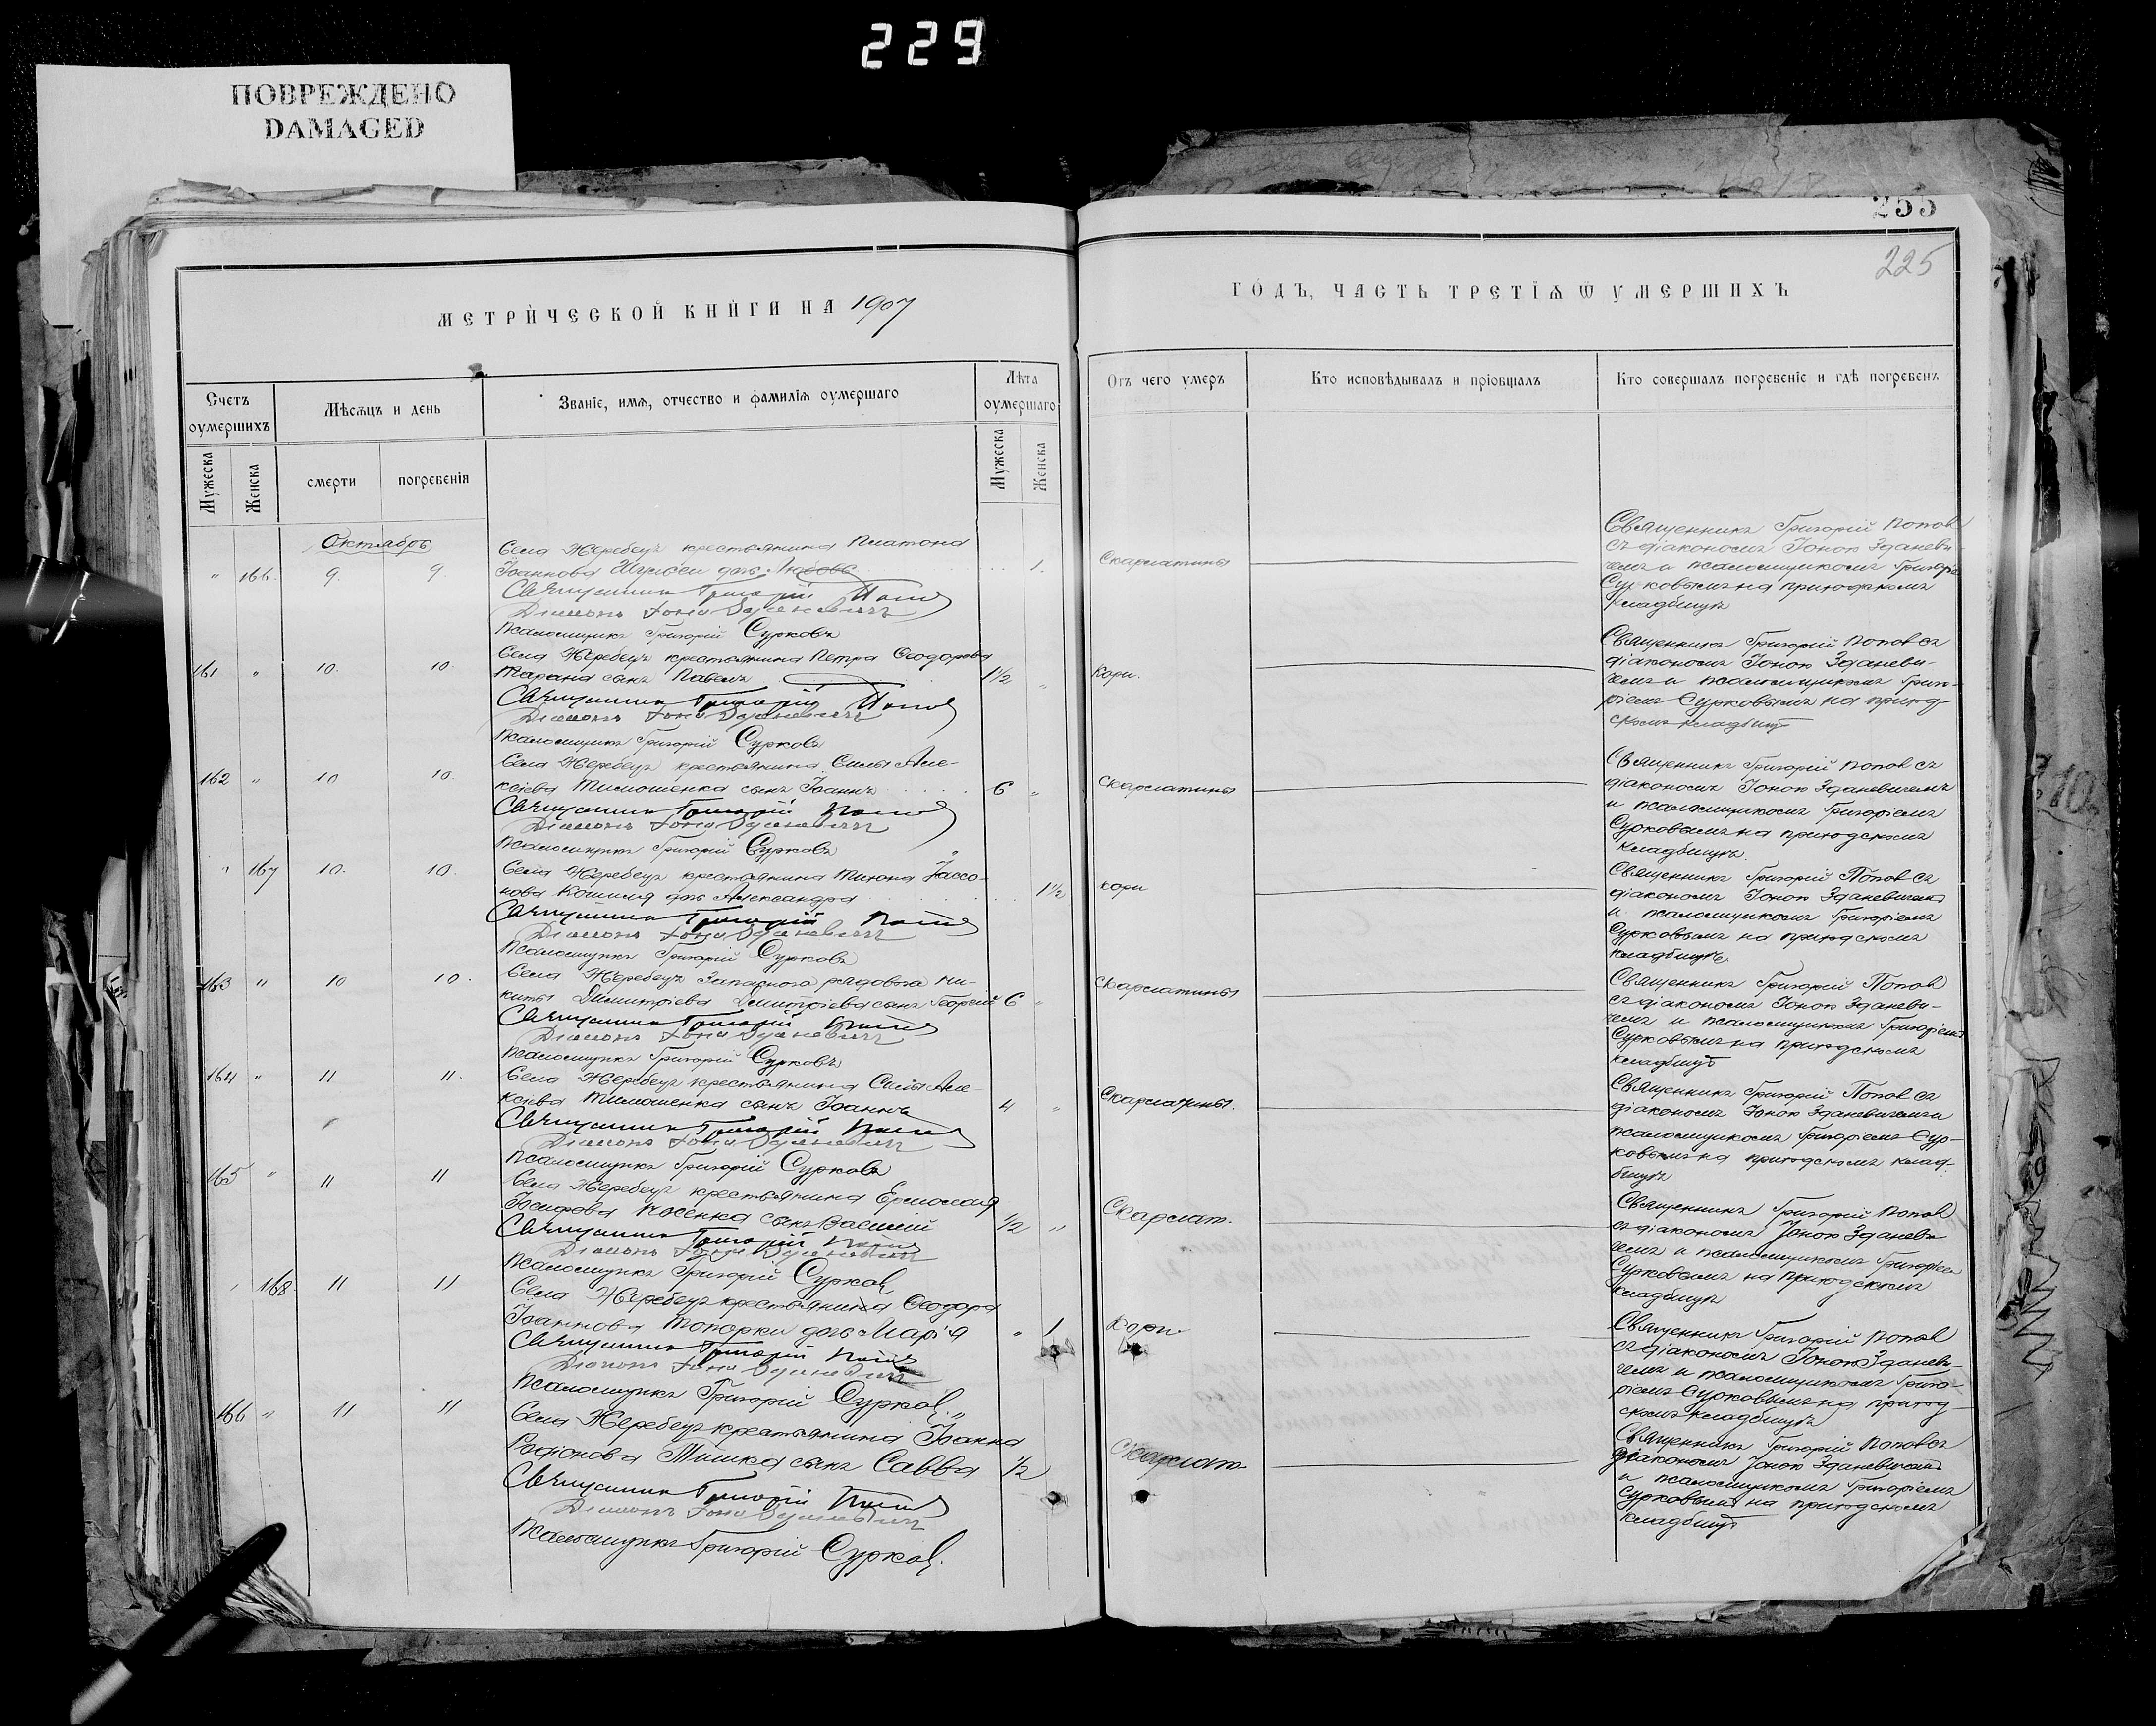 229
ПОВРЕЖДЕНО
DAMAGED
255
225
МЕТРИЧЕСКОЙ КНИГИ НА 1907
ГОДЪ, ЧАСТЬ ТРЕТІЯ Ѿ УМЕРШИХЪ
Счетъ оумершихъ
Мѣсяцъ и день
Званіе, имя, отчество и фамилія оумершаго
Лѣта оумершаго
Отъ чего умеръ
Кто исповѣдывалъ и пріобщалъ
Кто совершалъ погребеніе и гдѣ погребенъ
Мужеска
Женска
смерти
погребенія
Мужеска
Женска
Октябрь
Села Жеребецъ крестьянина Платона
" 166. 9. 9 Іоаннова дочь Любовь 1. Скарлатины
Священникъ Григорій Попов
Діаконъ Іона Зданевичъ
Псаломщикъ Григорій Сурковъ
Священникъ Григорій Попов
съ діакономъ Іоною Зданеви-
чемъ и псаломщикомъ Григоріе
Сурковымъ на приходскомъ
кладбищѣ
Села Жеребецъ крестьянина Петра Ѳеодорова
161 " 10. 10. Тарана сынъ Павелъ 1½ " Кори.
Священникъ Григорій Попов
Діаконъ Іона Зданевичъ
Псаломщикъ Григорій Сурковъ
Священникъ Григорій Попов съ
діакономъ Іоною Зданеви-
чемъ и псаломщикомъ Григо-
ріемъ Сурковымъ на приход-
скомъ кладбищѣ
Села Жеребецъ крестьянина Силы Але-
162 " 10 10. ксіева Тимошенка сынъ Іоаннъ 6 " Скарлатины
Священникъ Григорій Попов
Діаконъ Іона Зданевичъ
Псаломщикъ Григорій Сурковъ
Священникъ Григорій Попов съ
діакономъ Іоною Зданевичемъ
и псаломщикомъ Григоріемъ
Сурковымъ на приходскомъ
кладбищѣ.
" 167 10. 10. Села Жеребецъ крестьянина Тихона Іассо-
нова дочь Александра 1½ кори
Священникъ Григорій Попов
Діаконъ Іона Зданевичъ
Псаломщикъ Григорій Сурковъ
Священникъ Григорій Попов съ
діакономъ Іоною Зданевичемъ
и псаломщикомъ Григоріемъ
Сурковымъ на приходскомъ
кладбищѣ.
163 " 10 10. Села Жеребецъ Запаснаго рядового Ни-
киты Димитріева Димитріева сынъ Георгій 6 " Скарлатины
Священникъ Григорій Попов
Діаконъ Іона Зданевичъ
Псаломщикъ Григорій Сурковъ
Священникъ Григорій Попов
съ діакономъ Іоною Зданеви-
чемъ и псаломщикомъ Григоріемъ
Сурковымъ на приходскомъ
кладбищѣ
164 " 11 11. Села Жеребецъ крестьянина Силы Але-
ксіева Тимошенка сынъ Іоаннъ 4 " Скарлатины.
Священникъ Григорій Попов
Діаконъ Іона Зданевичъ
Псаломщикъ Григорій Сурковъ
Священникъ Григорій Попов съ
діакономъ Іоною Зданевичемъ и
псаломщикомъ Григоріемъ Сур-
ковымъ на приходскомъ клад-
бищѣ
165 " 11 11 Села Жеребецъ крестьянина Ермолая
Іосифова Носенка сынъ Василій ½ " Скарлат.
Священникъ Григорій Попов
Діаконъ Іона Зданевичъ
Псаломщикъ Григорій Сурков
Священникъ Григорій Попов
съ діакономъ Іоною Зданеви
чемъ и псаломщикомъ Григоріем
Сурковымъ на приходскомъ
кладбищѣ
" 168. 11 11 Села Жеребецъ крестьянина Ѳеодора
Іоаннова Топорки дочь Марія " 1 Кори
Священникъ Григорій Попов
Діаконъ Іона Зданевичъ
Псаломщикъ Григорій Сурков.
Священникъ Григорій Попов
съ діакономъ Іоною Зданеви-
чемъ и псаломщикомъ Григо-
ріемъ Сурковымъ на приход-
скомъ кладбищѣ
166 " 11 11 Села Жеребецъ крестьянина Іоанна
Родіонова Тишка сынъ Савва ½ Скарлат
Священникъ Григорій Попов
Діаконъ Іона Зданевичъ
Псаломщикъ Григорій Сурков.
Священникъ Григорій Попов съ
діакономъ Іоною Зданевичемъ
и псаломщикомъ Григоріемъ
Сурковымъ на приходскомъ
кладбищѣ